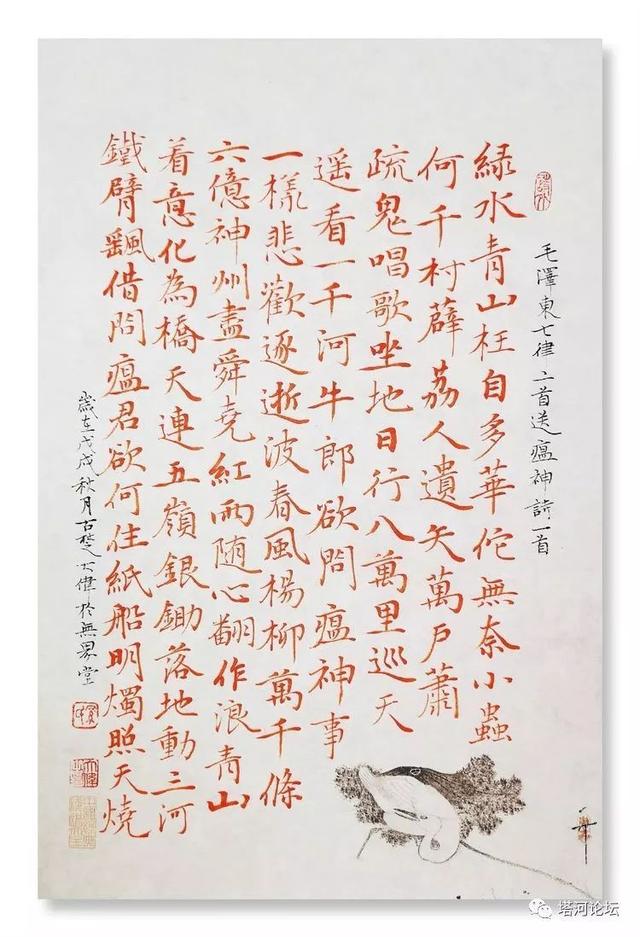 毛澤東七律二首送瘟神詩一首
綠水青山枉自多華佗無奈小蟲
何千村薜荔人遺矢萬戶蕭
疏鬼唱歌坐地日行八萬里巡天
遥看一千河牛郎欲問瘟神事
一樣悲歡逐逝波春風楊柳萬千條
六億神州盡舜堯紅雨随心翻作浪青山
着意化為橋天連五嶺銀鋤落地動三河
鐵臂颻借問瘟君欲何往紙船明燭照天燒
歲在戊戌秋月古楚大偉於無界堂
塔河论坛